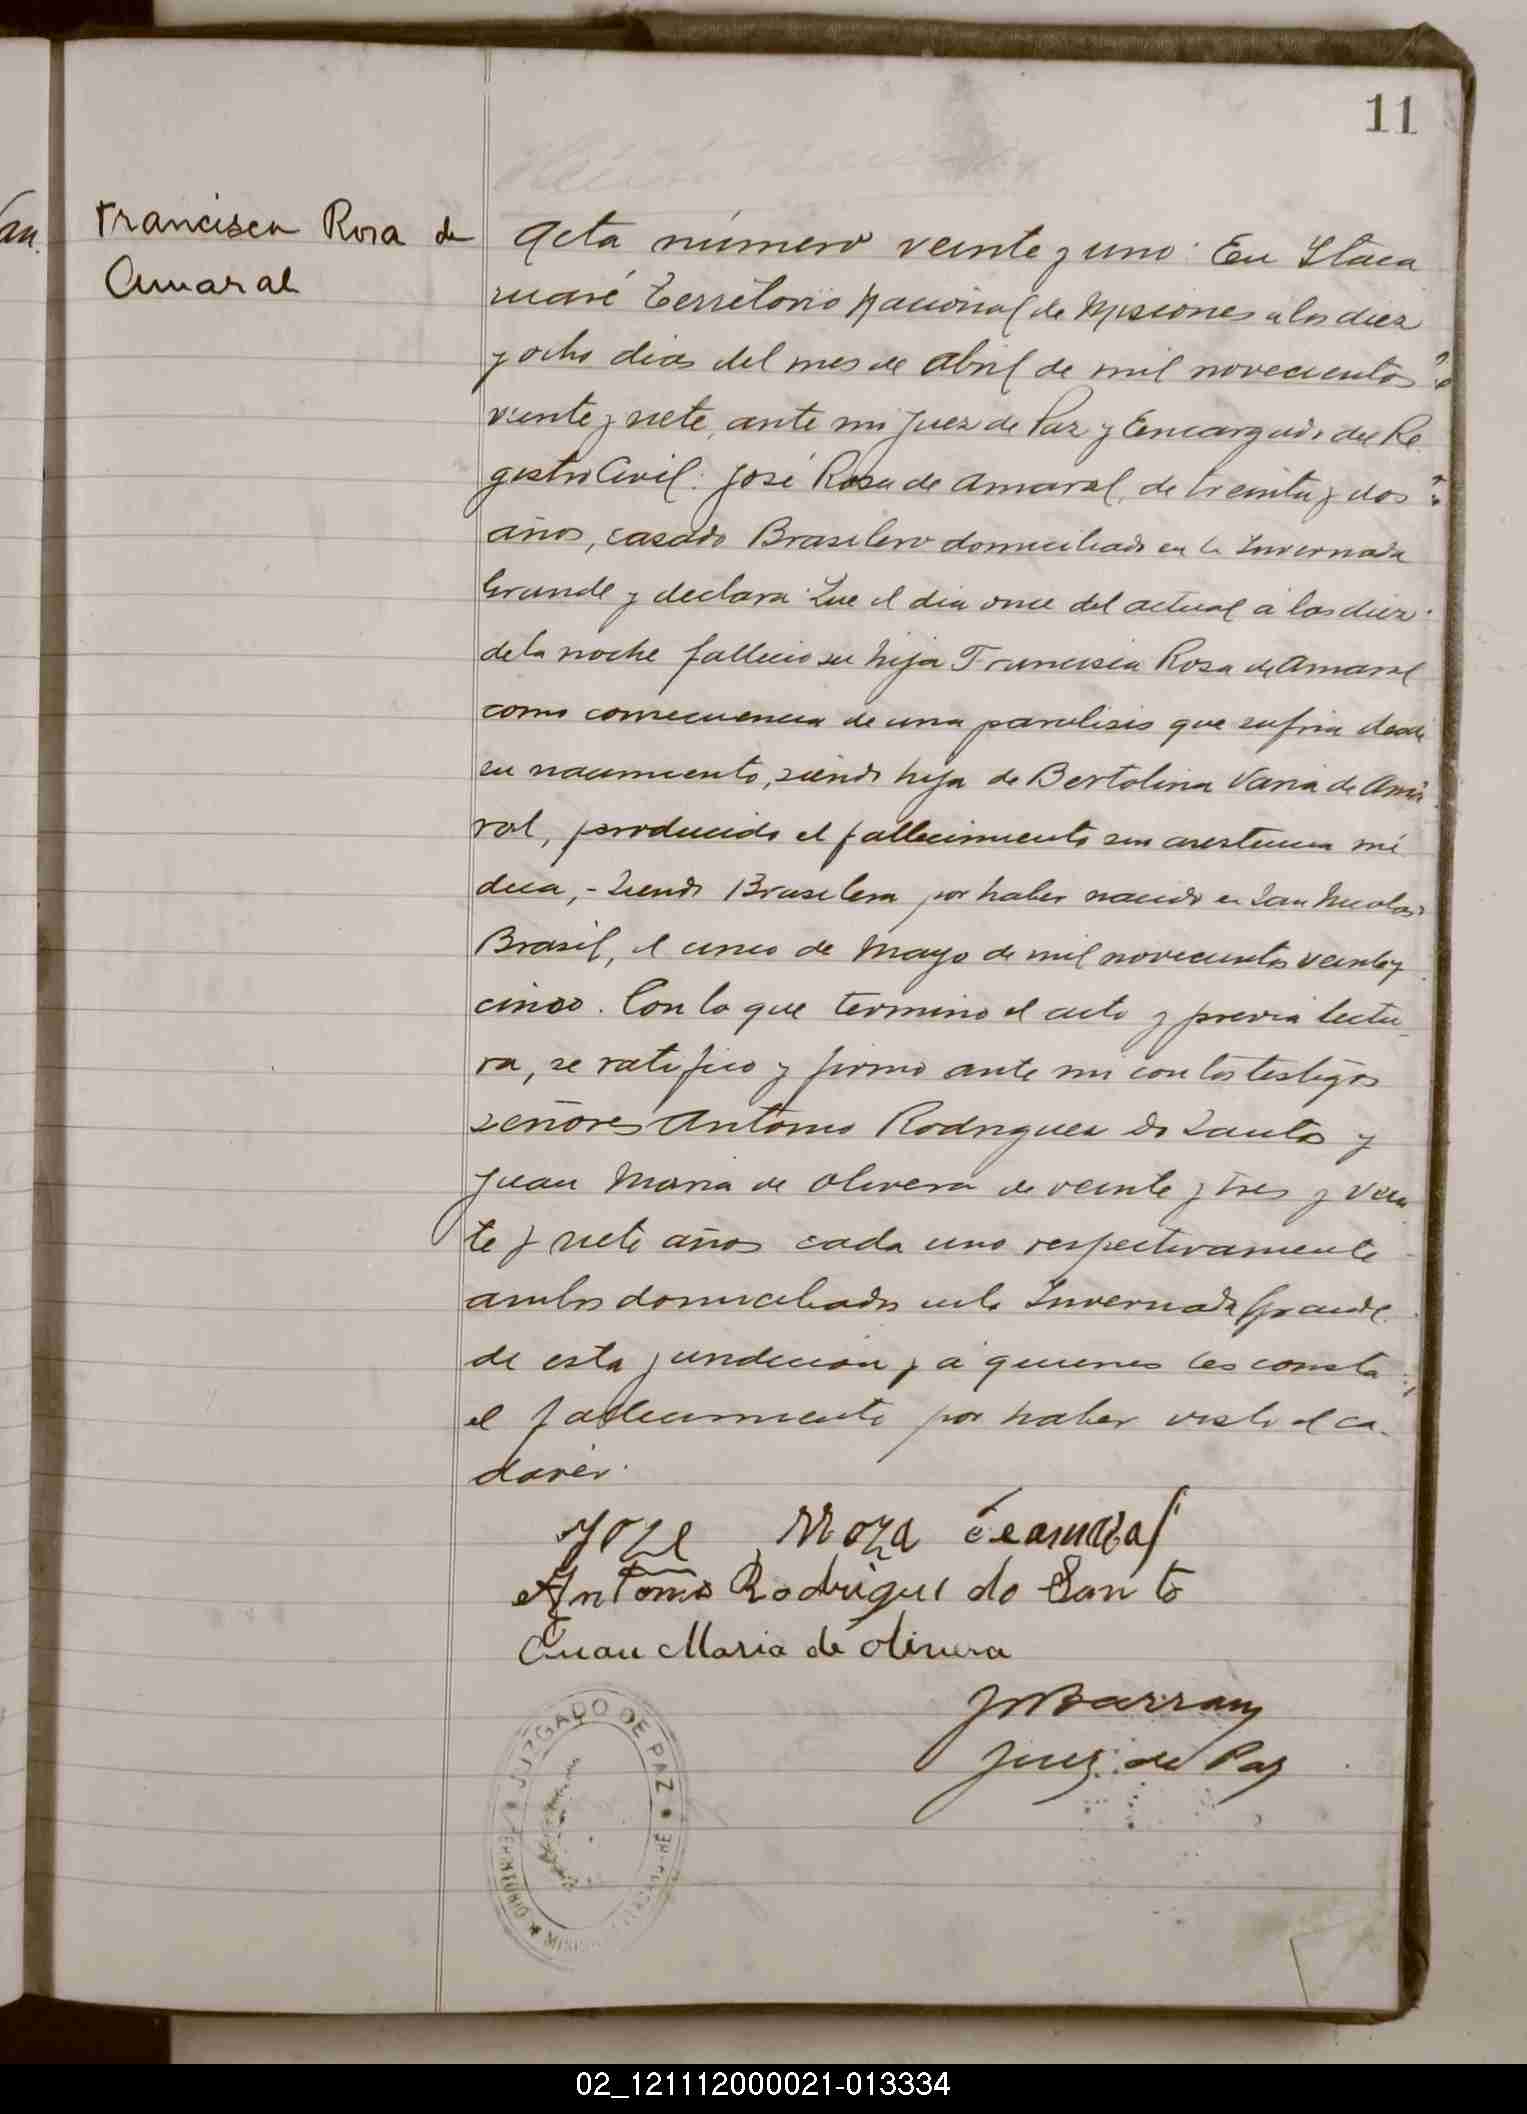 11
Francisca Rosa de
Amaral
Acta número veinte y uno: En Itaca
ruaré Territorio Nacional de Misiones a los diez
y ocho dias del mes de Abril de mil novecientos
veinte y siete, ante mi Juez de Paz y Encargado del Re
gistro Civil: José Rosa de Amaral, de treinta y dos
años, casado Brasilero domiciliado en la Invernada
Grande y declara: Que el dia once del actual á las diez
de la noche fallecio su hija Francisca Rosa de Amaral
como consecuencia de una paralisis que sufria desde
su nacimiento, siendo hija de Bertolina Varia de Ama
ral, producido el fallecimiento sin asistencia mé
dica, - Siendo Brasilera por haber nacido en San Nicolas
Brasil, el cinco de Mayo de mil novecientos veinte y
cinco. Con lo que termino el acto y previa lectu
ra, se ratifico y firmo ante mi con los testigos
señores Antonio Rodriguez do Santos y
Juan Maria de Olivera de veinte y tres y vein
te y siete años cada uno respectivamente
ambos domiciliados en la Invernada Grande
de esta juridicion y á quienes les consta
el fallecimiento por haber visto el ca-
daver.
Joze Rroza de amaral
Antonio Rodrigues do Santo
Juan Maria de Olivera
Juez de Paz
JUZGADO DE PAZ
TERRITORIO